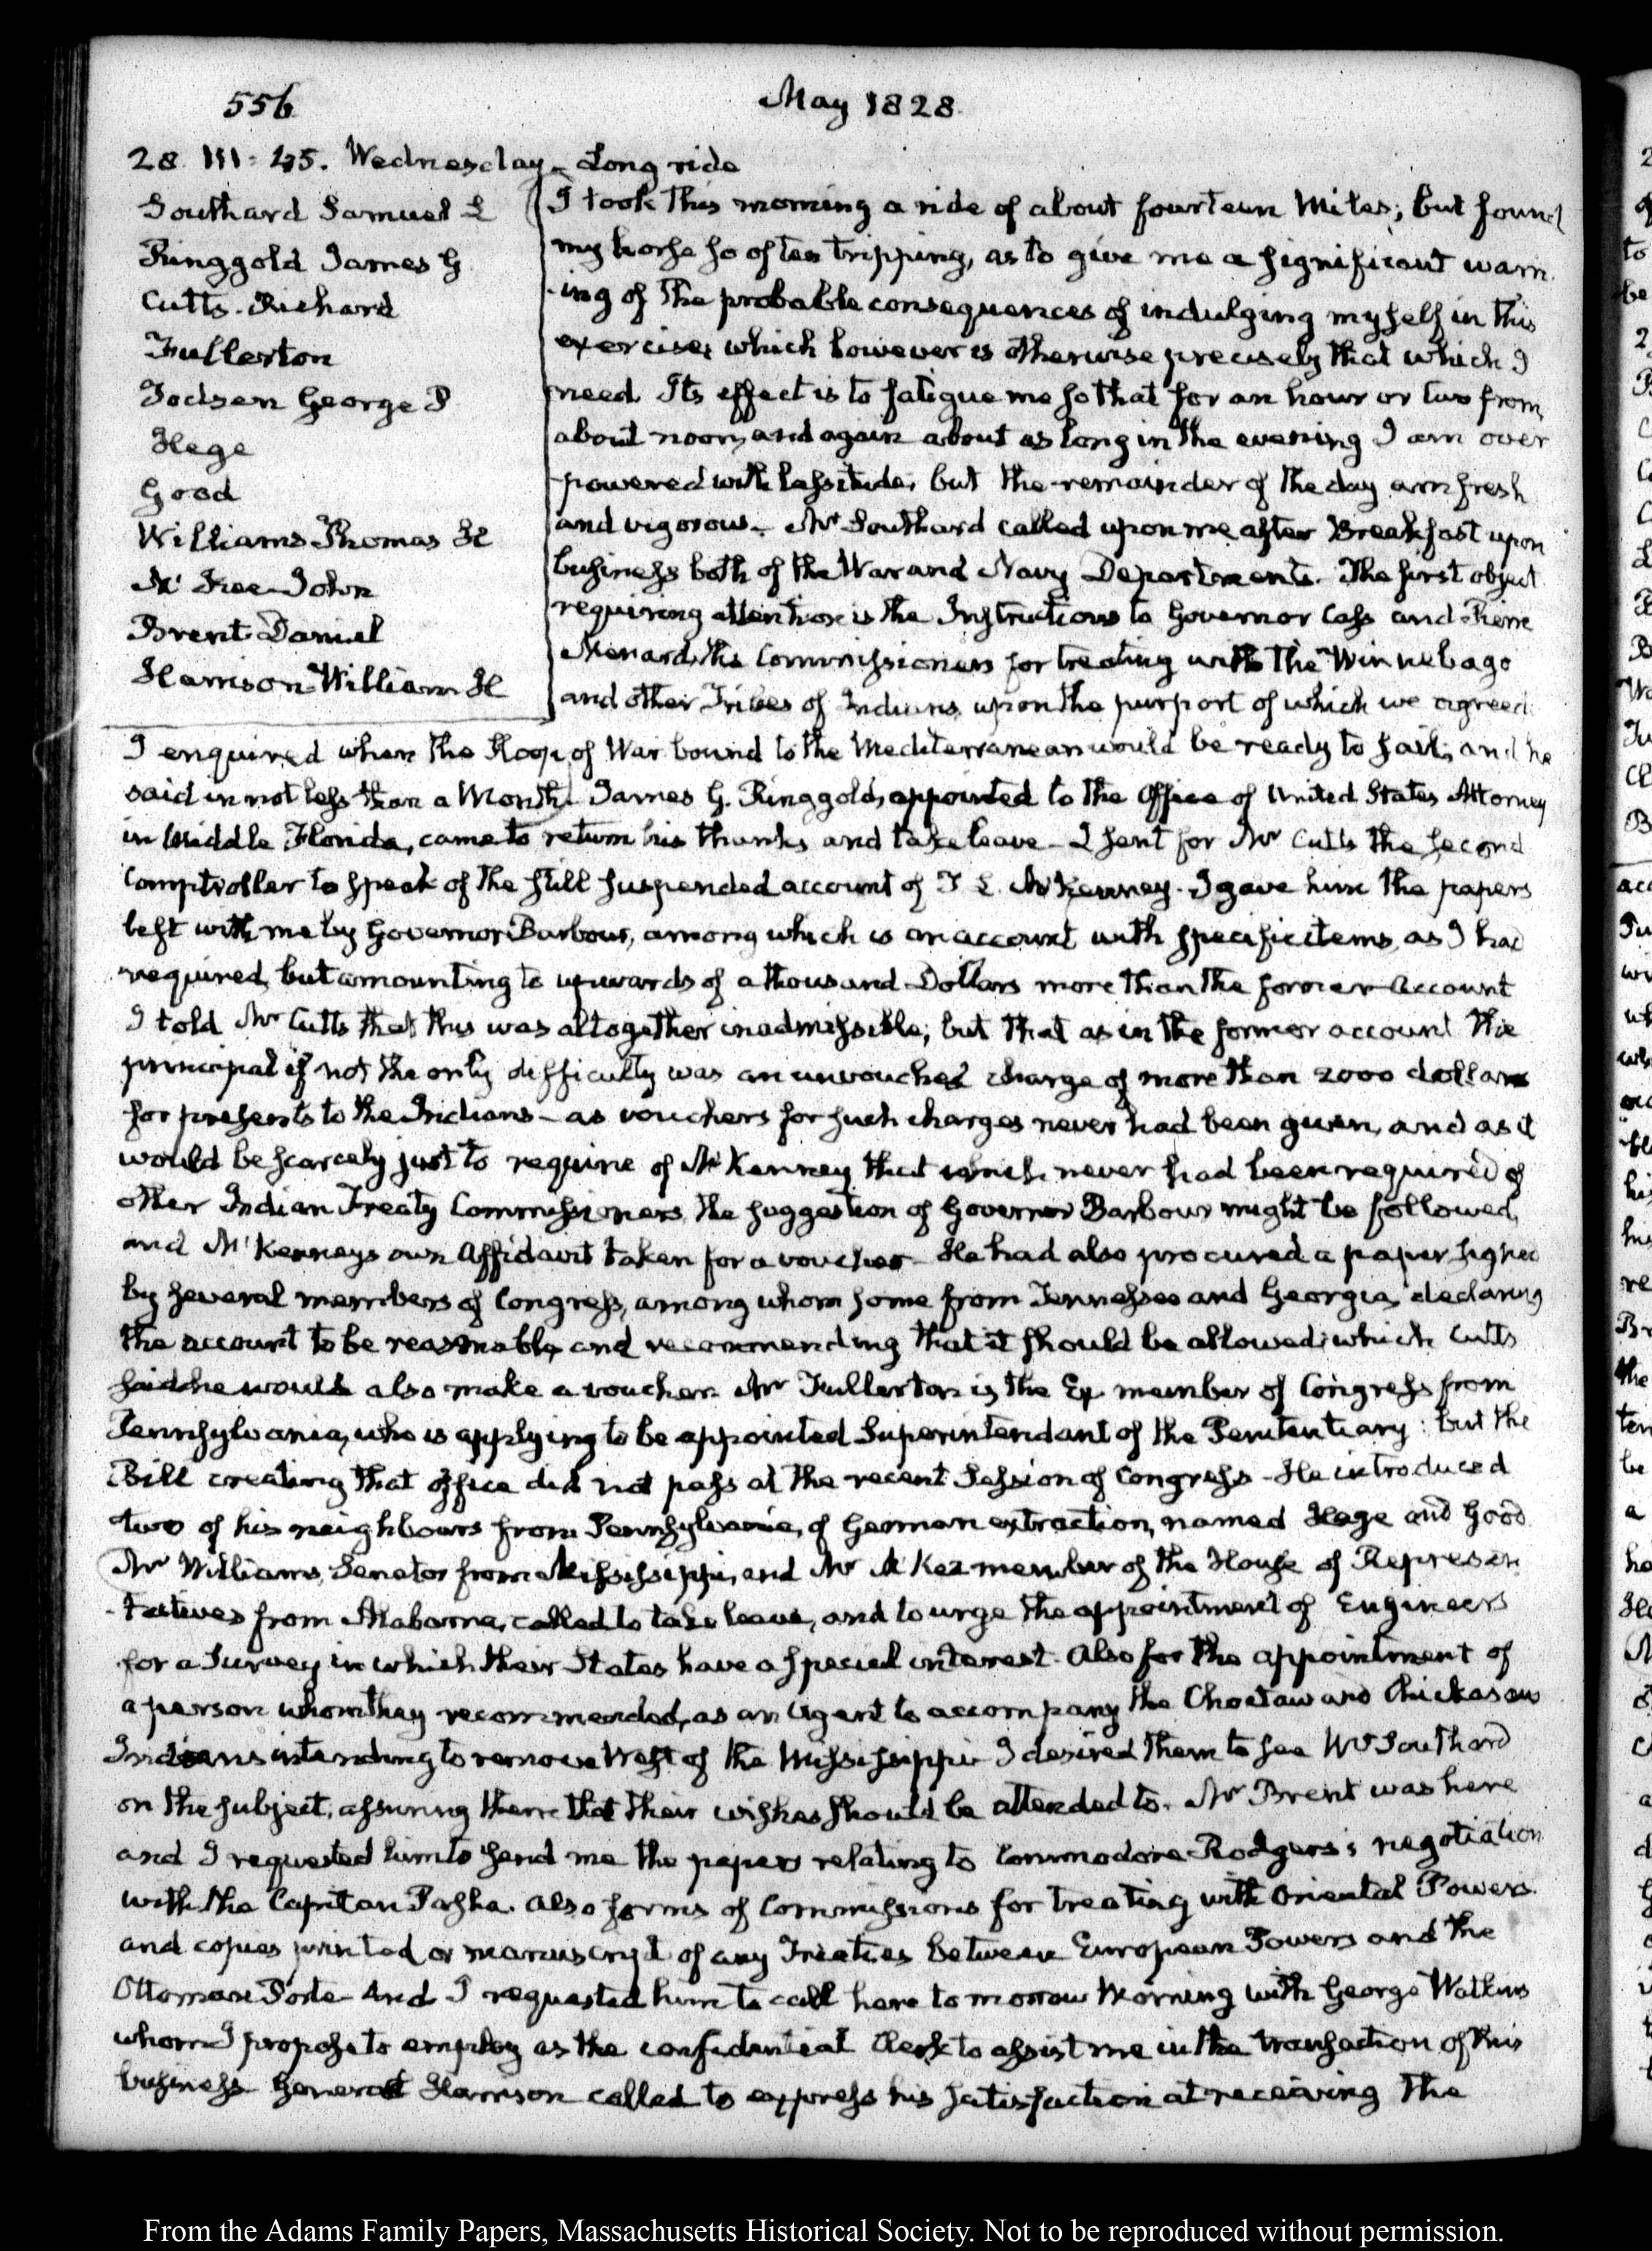 556
May 1828
28. III:45. Wednesday. Long ride
Southard Samuel L
Ringgold James G
Cutts. Richard
Fullerton
Todsen George P
Hege
Good
Williams Thomas H
McKee John
Brent Daniel
Harrison William H
I took this morning a ride of about fourteen Miles; but found
my horse so often tripping, as to give me a significant warn-
-ing of the probable consequences of indulging myself in this
exercise, which however is otherwise precisely that which I
need. Its effect is to fatigue me so that for an hour or two from
about noon, and again about as long in the evening I am over
powered with lassitude, but the remainder of the day am fresh
and vigorous. Mr Southard called upon me after Breakfast upon
business both of the War and Navy Departments. The first object
requiring attention is the Instructions to Governor Cass and Pierre
Menard, the Commissioners for treating with the Winnebago
and other Tribes of Indians, upon the purport of which we agreed.
I enquired when the Sloop of War bound to the Mediterranean would be ready to sail, and he
said in not less than a Month. James G. Ringgold, appointed to the Office of United States Attorney
in Middle Florida, came to return his thanks and take leave. I sent for Mr Cutts the second
Comptroller to speak of the still suspended account of T. L. McKenney. I gave him the papers
left with me by Governor Barbour, among which is an account with specific items, as I had
required, but amounting to upwards of a thousand Dollars more than the former account
I told Mr Cutts that this was altogether inadmissible; but that as in the former account the
principal if not the only difficulty was an unvouched charge of more than 2000 dollars
for presents to the Indians - as vouchers for such charges never had been given, and as it
would be scarcely just to require of McKenney that which never had been required of
other Indian Treaty Commissioners, the suggestion of Governor Barbour might be followed,
and McKenneys own Affidavit taken for a voucher. He had also procured a paper signed
by several members of Congress, among whom some from Tennessee and Georgia, declaring
the account to be reasonable, and recommending that it should be allowed; which Cutts
said he would also make a voucher. Mr Fullerton is the Ex member of Congress from
Pennsylvania, who is applying to be appointed Superintendant of the Penitentiary: but the
Bill creating that office did not pass at the recent Session of Congress - He introduced
two of his neighbours from Pennsylvania, of German extraction, named Hege and Good
Mr Williams, Senator from Mississippi, and Mr McKee member of the House of Represen-
-tatives from Alabama, called to take leave, and to urge the appointment of Engineers
for a Survey in which their States have a special interest. Also for the appointment of
a person whom they recommended, as an Agent to accompany the Choctaw and Chickasaw
Indians intending to remove West of the Mississippi I desired them to see Mr Southard
on the subject, assuring them that their wishes should be attended to. Mr Brent was here
and I requested him to send me the papers relating to Commodore Rodgers's negotiation
with the Capitan Pasha. Also forms of Commissions for treating with Oriental Powers.
and copies printed or manuscript of any Treaties between European Powers and the
Ottoman Porte. And I requested him to call here to morrow Morning with George Watkins
whom I propose to employ as the confidential Clerk to assist me in the transaction of this
business General Harrison called to express his satisfaction at receiving the
From the Adams Family Papers, Massachusetts Historical Society. Not to be reproduced without permission.